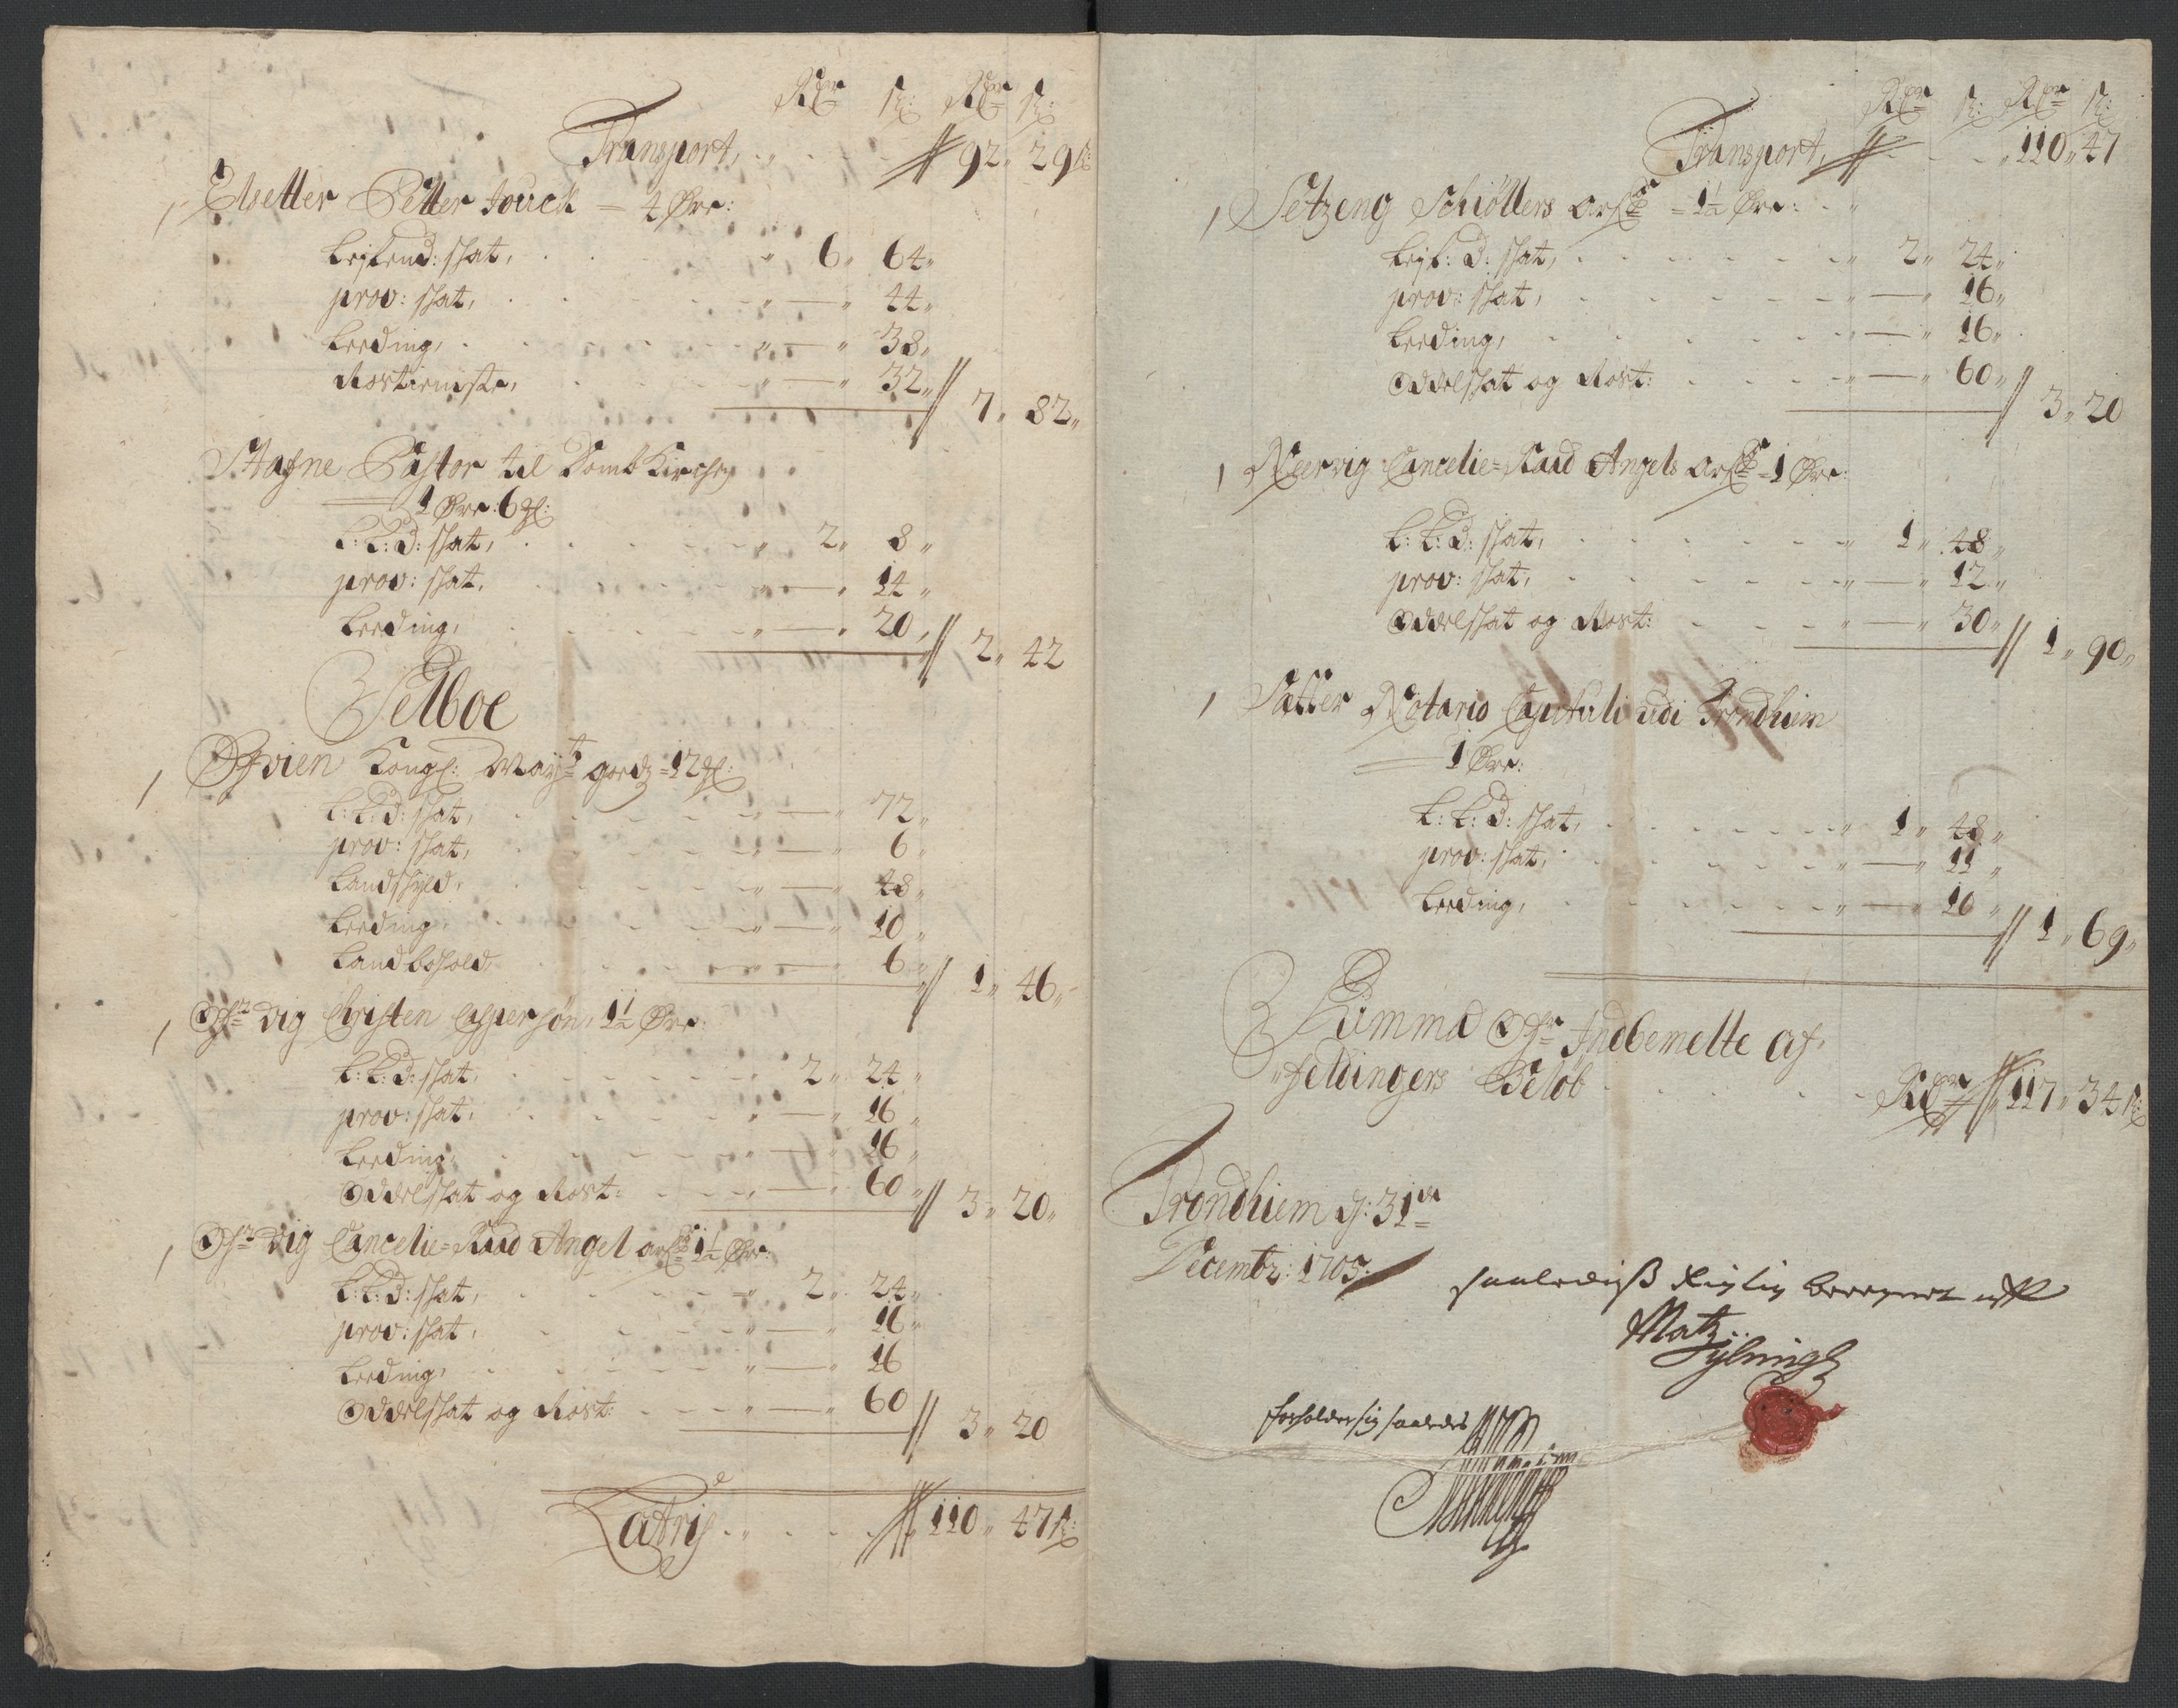 Rdr ß: Rdr ß:
Transport, 92 29 ß:
Elsetter Petter Jouck - 4 Øre:
Leilend: skat, 6 64
prov: skat, 44
Leeding, 38
Rostieniste, 32 // 7 82
Stafne Pastor til Domb Kirchen
1 Øre 6 gl:
L: L: d: skat, 2 8
prov: skat, 14
Leeding, 20 // 2 42
Selboe
1 Øfvien Kongl: Mayts godtz = 12 gl:
L: L: d: skat, 72
prov: skat, 6
Landskyld, 48
Leeding, 10
Landbohold, 6 // 1 46
1 dig Christen Caspersøn, 1½ Øre
L: L: d: skat, 2 24
prov: skat, 16
Leeding, 16
Oddelskat og Rost: 60 // 3 20
1 dig Cancelie-Raad Angel 1½ Øre:
L: L: d: skat, 2 24
prov: skat, 16
Leeding, 16
Oddelskat og Rost: 60 // 3 20
Latris 110 47 ß:
Rdr ß: Rdr ß:
Transport, 110 47
1 Setzeng Schiøllers = 1½ Øre:
Leil: d: skat, 2 24
prov: skat, 16
Leeding, 16
Oddelskat og Rost: 60 // 3 20
1 Nervig Cancelie-Raad Angels = 1 Øre:
L: L: d: skat, 1 48
prov: skat, 12
Oddelskat og Rost: 30 // 1 90
1 Sætter Notario Capituli udi Trondhiem
1 Øre:
L: L: d: skat, 1 48
prov: skat, 11
Leeding, 10 // 1 69
Summa Indbemelte Af-
feldingers Beløb Rdr 117 34 ß:
Trondhiem d: 31de
Decembr: 1705.
saalediß Rigtig beregnet
Matz
forholder sig saaledes